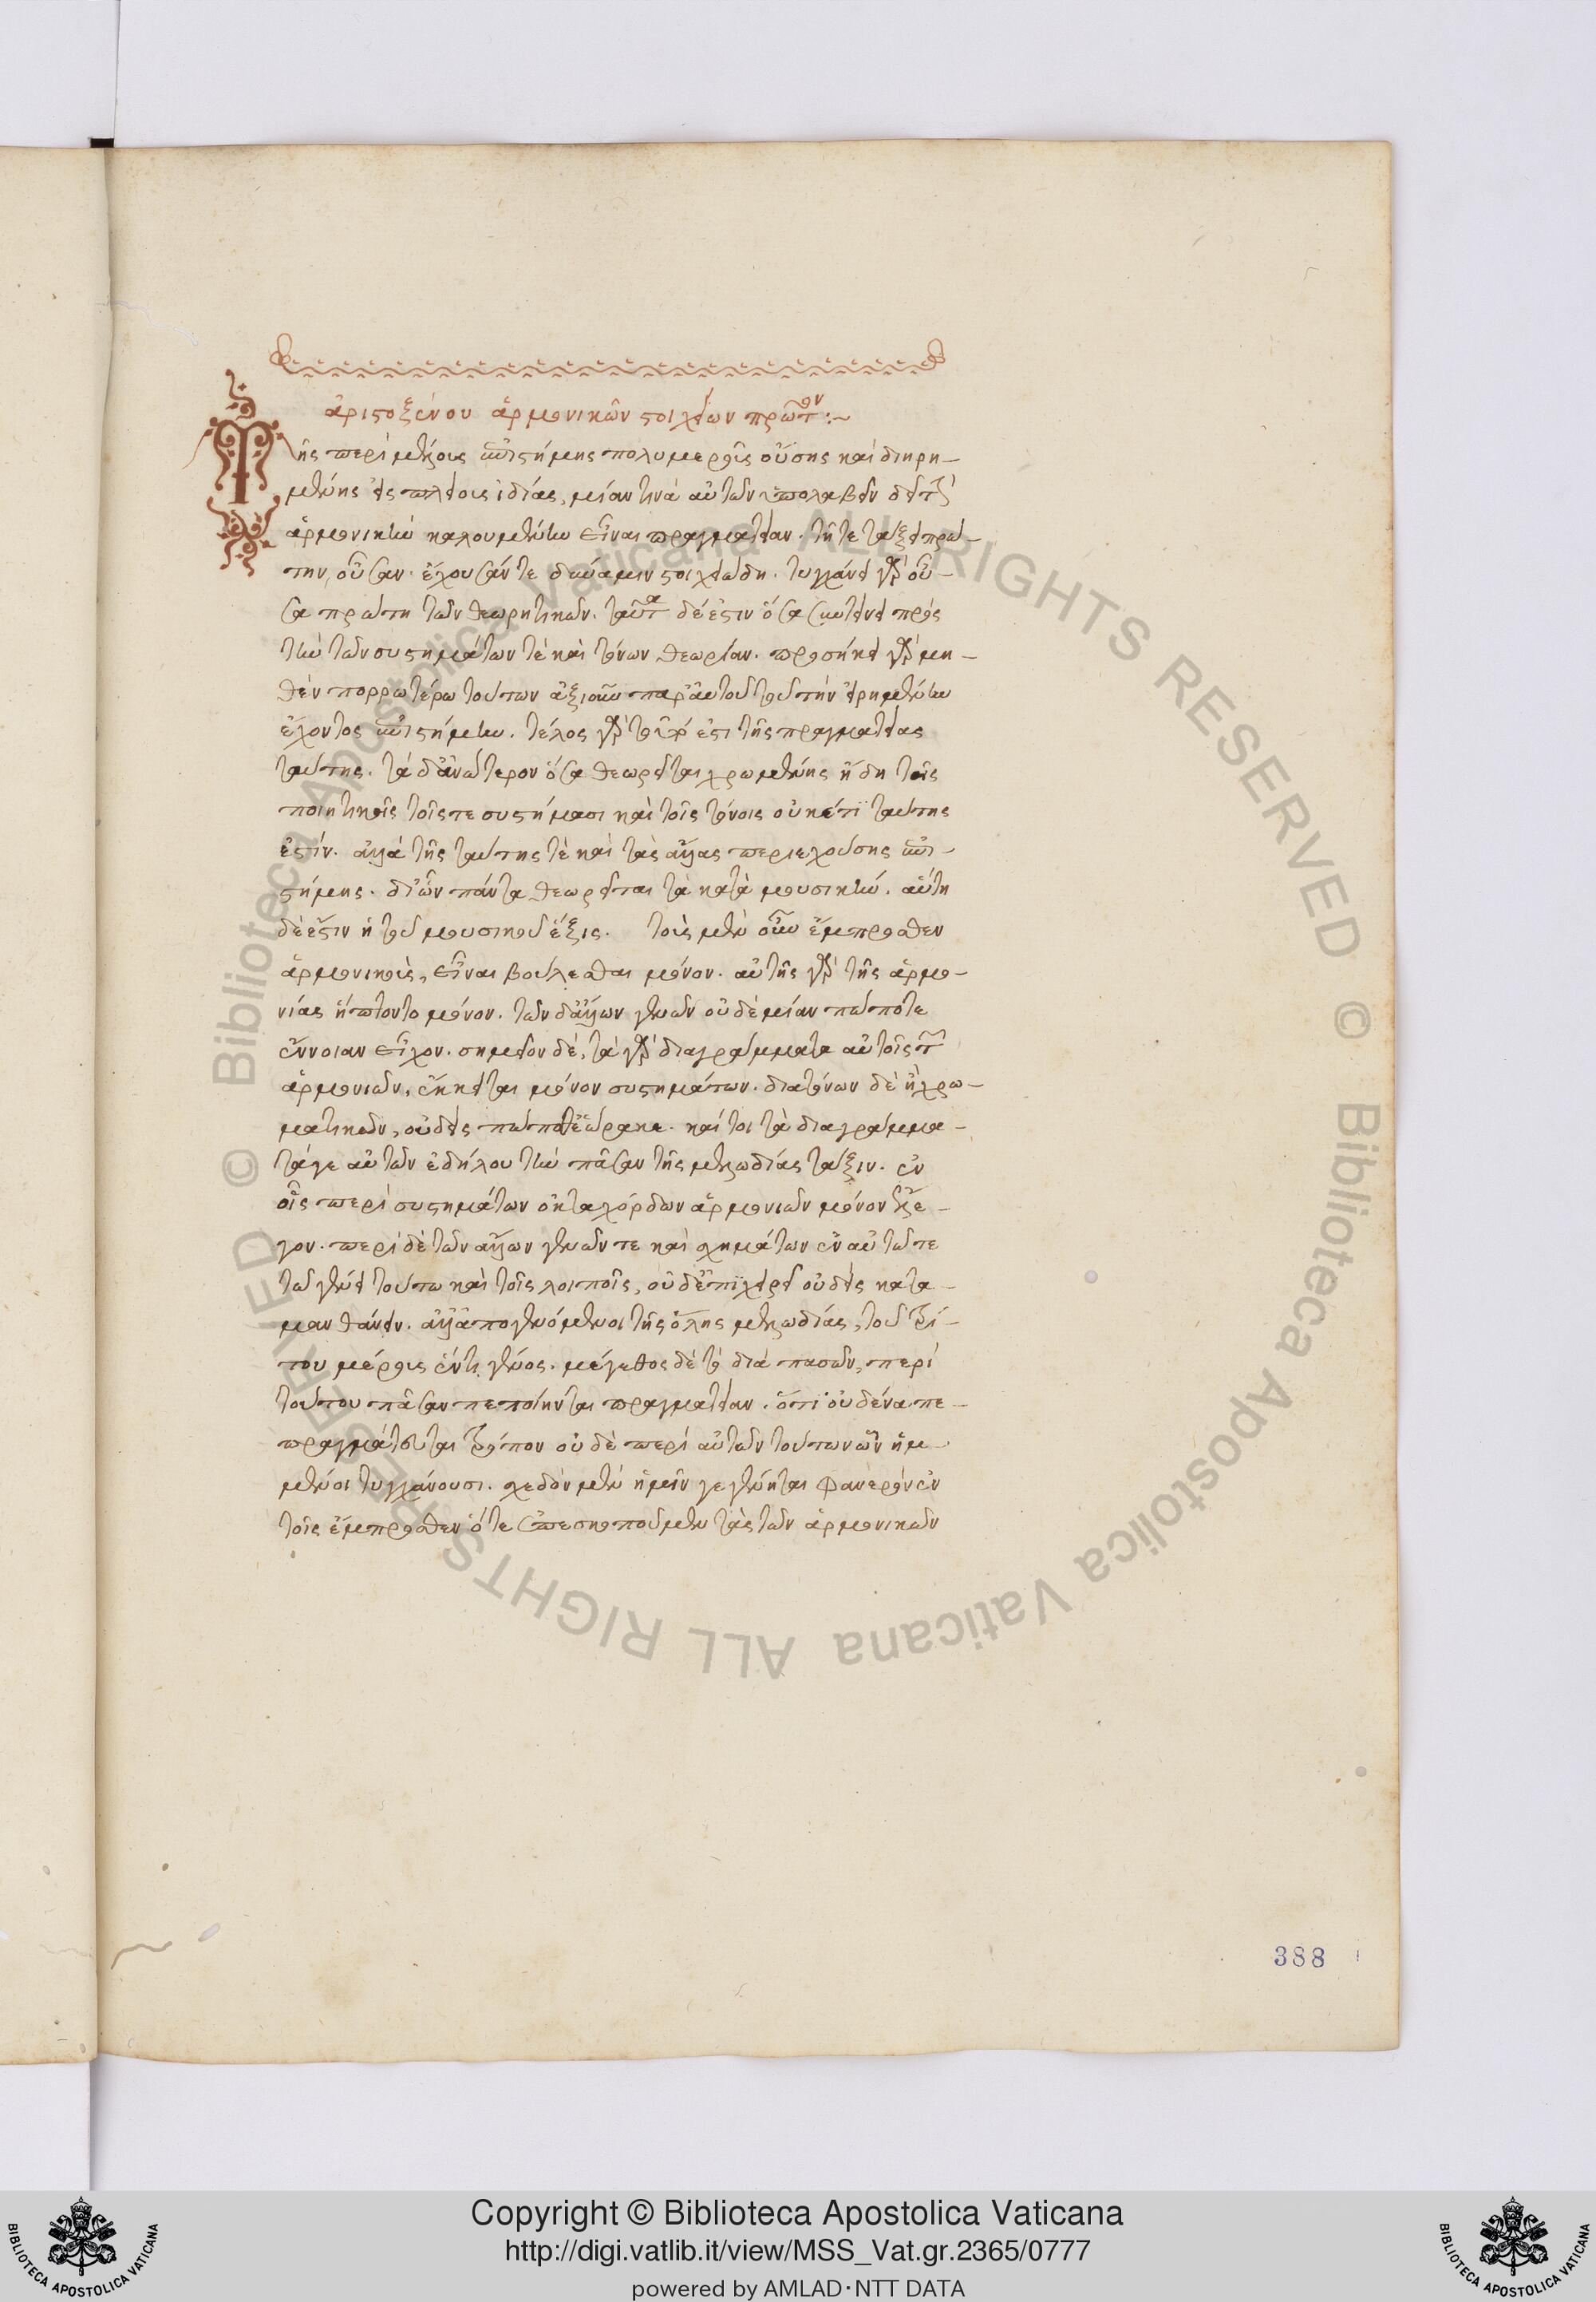 ἀριστοξένου ἁρμονικῶν στοιχείων πρῶτον:~
Τῆς περὶ μέλους ἐπιστήμης πολυμεροῦς οὔσης καὶ διῃρη-
μένης εἰς πλείους ἰδίας, μίαν τινὰ αὐτῶν ὑπολαβεῖν δεῖ τὴν
ἁρμονικὴν καλουμένην εἶναι πραγματείαν. τῇ τε τάξει πρώ-
την, οὖσαν. ἔχουσάν τε δύναμιν στοιχειώδη. τυγχάνει γὰρ οὖ-
σα πρώτη τῶν θεωρητικῶν. ταῦτα δέ ἐστιν ὅσα συντείνει πρὸς
τὴν τῶν συστημάτων τὲ καὶ τόνων θεωρίαν. προσήκει γὰρ μη-
θὲν πορρωτέρω τούτων ἀξιοῦν παρ' αὐτοῦ τοῦ τὴν εἰρημένην
ἔχοντος ἐπιστήμην. τέλος γὰρ τοῦτό ἐστι τῆς πραγματείας
ταύτης. τὰ δ' ἀνώτερον ὅσα θεωρεῖται χρωμένης ἤδη τοῖς
ποιητικοῖς τοῖς τε συστήμασι καὶ τοῖς τόνοις οὐκέτι ταύτης
ἐστίν. ἀλλὰ τῆς ταύτης τὲ καὶ τὰς ἄλλας περιεχούσης ἐπι-
στήμης. δι' ὧν πάντα θεωρεῖται τὰ κατὰ μουσικήν. αὕτη
δὲ ἐστιν ἡ τοῦ μουσικοῦ ἕξις. τοὺς μὲν οὖν ἔμπροσθεν
ἁρμονικοὺς, εἶναι βούλεσθαι μόνον. αὐτῆς γὰρ τῆς ἁρμο-
νίας ἥπτοντο μόνον. τῶν δ' ἄλλων γενῶν οὐδὲ μίαν πώποτε
ἔννοιαν εἶχον. σημεῖον δὲ, τὰ γὰρ διαγράμματα αὐτοῖς τῶν
ἁρμονιῶν, ἔκκειται μόνον συστημάτων. διατόνων δὲ ἢ χρω-
ματικῶν, οὐδεὶς πώποθ' ἑώρακε. καί τοι τὰ διαγράμμα-
τά γε αὐτῶν ἐδήλου τὴν πᾶσαν τῆς μελῳδίας τάξιν. ἐν
οἷς περὶ συστημάτων ὀκταχόρδων ἁρμονιῶν μόνον ἔλε-
γον. περὶ δὲ τῶν ἄλλων γενῶν τε καὶ σχημάτων ἐν αὐτῷ τε
τῷ γένει τούτῳ καὶ τοῖς λοιποῖς, οὐδ' ἐπιχειρεῖ οὐδεὶς κατα-
μανθάνειν. ἀλλ' ἀπογενόμενοι τῆς ὅλης μελῳδίας, τοῦ τρί-
του μέρους ἕν τι γένος. μέγεθος δὲ τὸ διὰ πασῶν, περὶ
τούτου πᾶσαν πεποίηνται πραγματείαν. ὅτι οὐδένα πε-
πραγμάτευται τρόπον οὐδὲ περὶ αὐτῶν τούτων ὧν ἡμ-
μένοι τυγχάνουσι. σχεδὸν μὲν ἡμῖν γεγένηται φανερὸν ἐν
τοῖς ἔμπροσθεν ὅτε ἐπεσκοποῦμεν τὰς τῶν ἁρμονικῶν
388
© Biblioteca Apostolica Vaticana ALL RIGHTS RESERVED © Biblioteca Apostolica Vaticana ALL RIGHTS RESERVED
Copyright © Biblioteca Apostolica Vaticana
http://digi.vatlib.it/view/MSS_Vat.gr.2365/0777
powered by AMLAD·NTT DATA
BIBLIOTECA APOSTOLICA VATICANA
BIBLIOTECA APOSTOLICA VATICANA